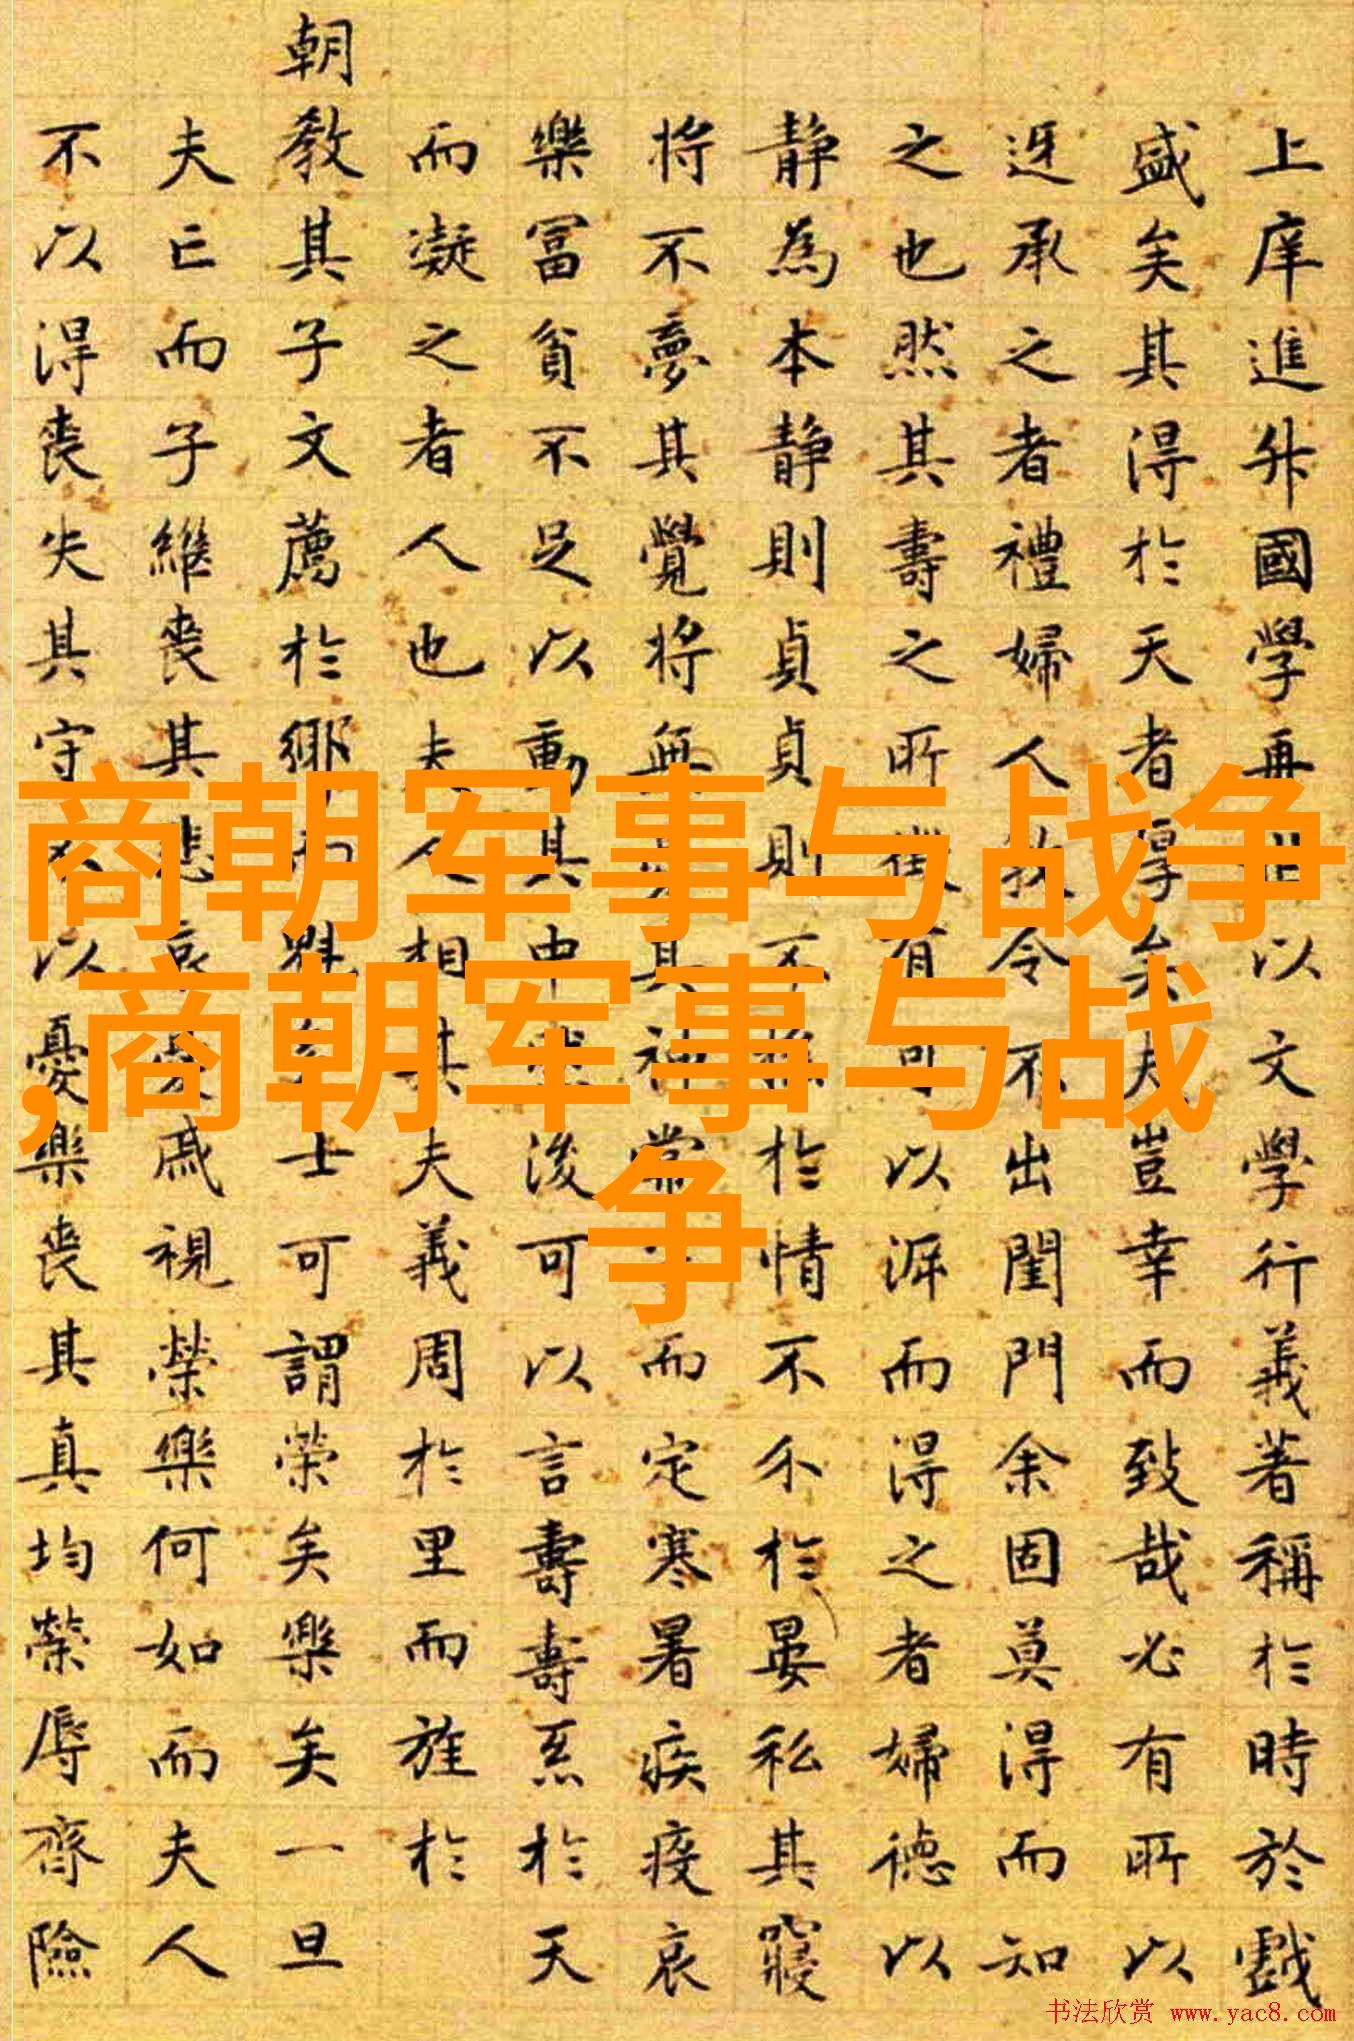 上庠進升國學再以文學行義著稱於時於戲
盛矣其得於天者厚矣夫豈幸而致哉必有所以
迓承之者禮婦人教令不出閨門余固莫得而知
之也然其壽之所徵有可以涯而得之者婦德以
静為本静則貞貞則不於情不介於晏私其寢
将不夢其覺将無其神常而定寒暑疾疫哀
樂冨貧不足以動其中然後可以言壽壽系於天
而凝之者人也夫人相其夫義周於里而旌於
朝教其子文薦於鄉而士可謂榮矣樂矣一旦
夫亡而子繼喪其悲哀戚視榮樂何如而夫人
不以得喪失其守不以憂樂喪其真均榮辱齊險
商朝军事与战争
,商朝军事与战
争
书法欣赏 www.yac8.com